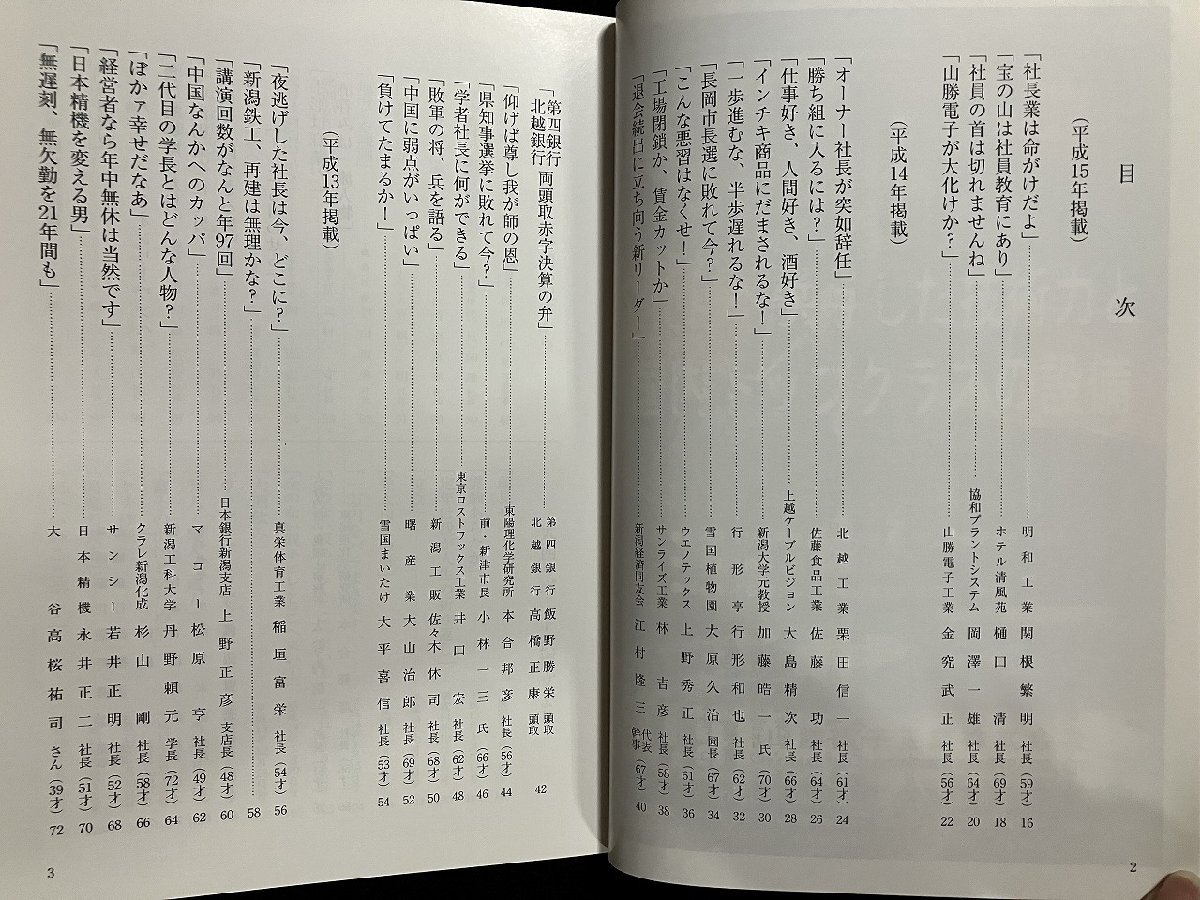 目次
（平成15年掲載）
「社長業は命がけだよ」……明和工業 関根繁明 社長（59才）16
「宝の山は社員教育にあり」……ホテル清風苑 樋口清 社長（69才）18
「社員の首は切れませんね」……協和プラントシステム 岡澤一雄 社長（54才）20
「山勝電子が大化けか？」……山勝電子工業 金究武正 社長（56才）22
（平成14年掲載）
「オーナー社長が突如辞任」……北越工業 栗田信一 社長（61才）24
「勝ち組に入るには？」……佐藤食品工業 佐藤功 社長（64才）26
「仕事好き、人間好き、酒好き」……上越ケーブルビジョン 大島精次 社長（66才）28
「インチキ商品にだまされるな！」……新潟大学元教授 加藤皓一 氏（70才）30
「一歩進むな、半歩遅れるな！」……行形亭 行形和也 社長（62才）32
「長岡市長選に敗れて今？」……雪国植物園 大原久治 園長（67才）34
「こんな悪習はなくせ！」……ウエノテックス 上野秀正 社長（51才）36
「工場閉鎖か、賃金カットか」……サンライズ工業 林吉彦 社長（58才）38
「退会続出に立ち向う新リーダー」……新潟経済同友会 江村隆三 代表幹事（67才）40
2
「第四銀行 北越銀行 両頭取赤字決算の弁」……第四銀行 飯野勝栄 頭取 北越銀行 高橋正康 頭取 42
「仰げば尊し我が師の恩」……東陽理化学研究所 本合邦彦 社長（56才）44
「県知事選挙に敗れて今？」……前・新津市長 小林一三 氏（66才）46
「学者社長に何ができる」……東京コストフックス工業 井口宏 社長（62才）48
「敗軍の将、兵を語る」……新潟工販 佐々木休司 社長（68才）50
「中国に弱点がいっぱい」……曙産業 大山治郎 社長（69才）52
「負けてたまるか！」……雪国まいたけ 大平喜信 社長（53才）54
（平成13年掲載）
「夜逃げした社長は今、どこに？」……真栄体育工業 稲垣富栄 社長（54才）56
「新潟鉄工、再建は無理かな？」……58
「講演回数がなんと年97回」……日本銀行新潟支店 上野正彦 支店長（48才）60
「中国なんかへのカッパ」……マコー 松原亨 社長（49才）62
「二代目の学長とはどんな人物？」……新潟工科大学 丹野頼元 学長（72才）64
「ぼかァ幸せだなあ」……クラレ新潟化成 杉山剛 社長（58才）66
「経営者なら年中無休は当然です」……サンシー 若井正明 社長（52才）68
「日本精機を変える男」……日本精機 永井正二 社長（51才）70
「無遅刻、無欠勤を21年間も」……大谷 高桜祐司 さん（39才）72
3